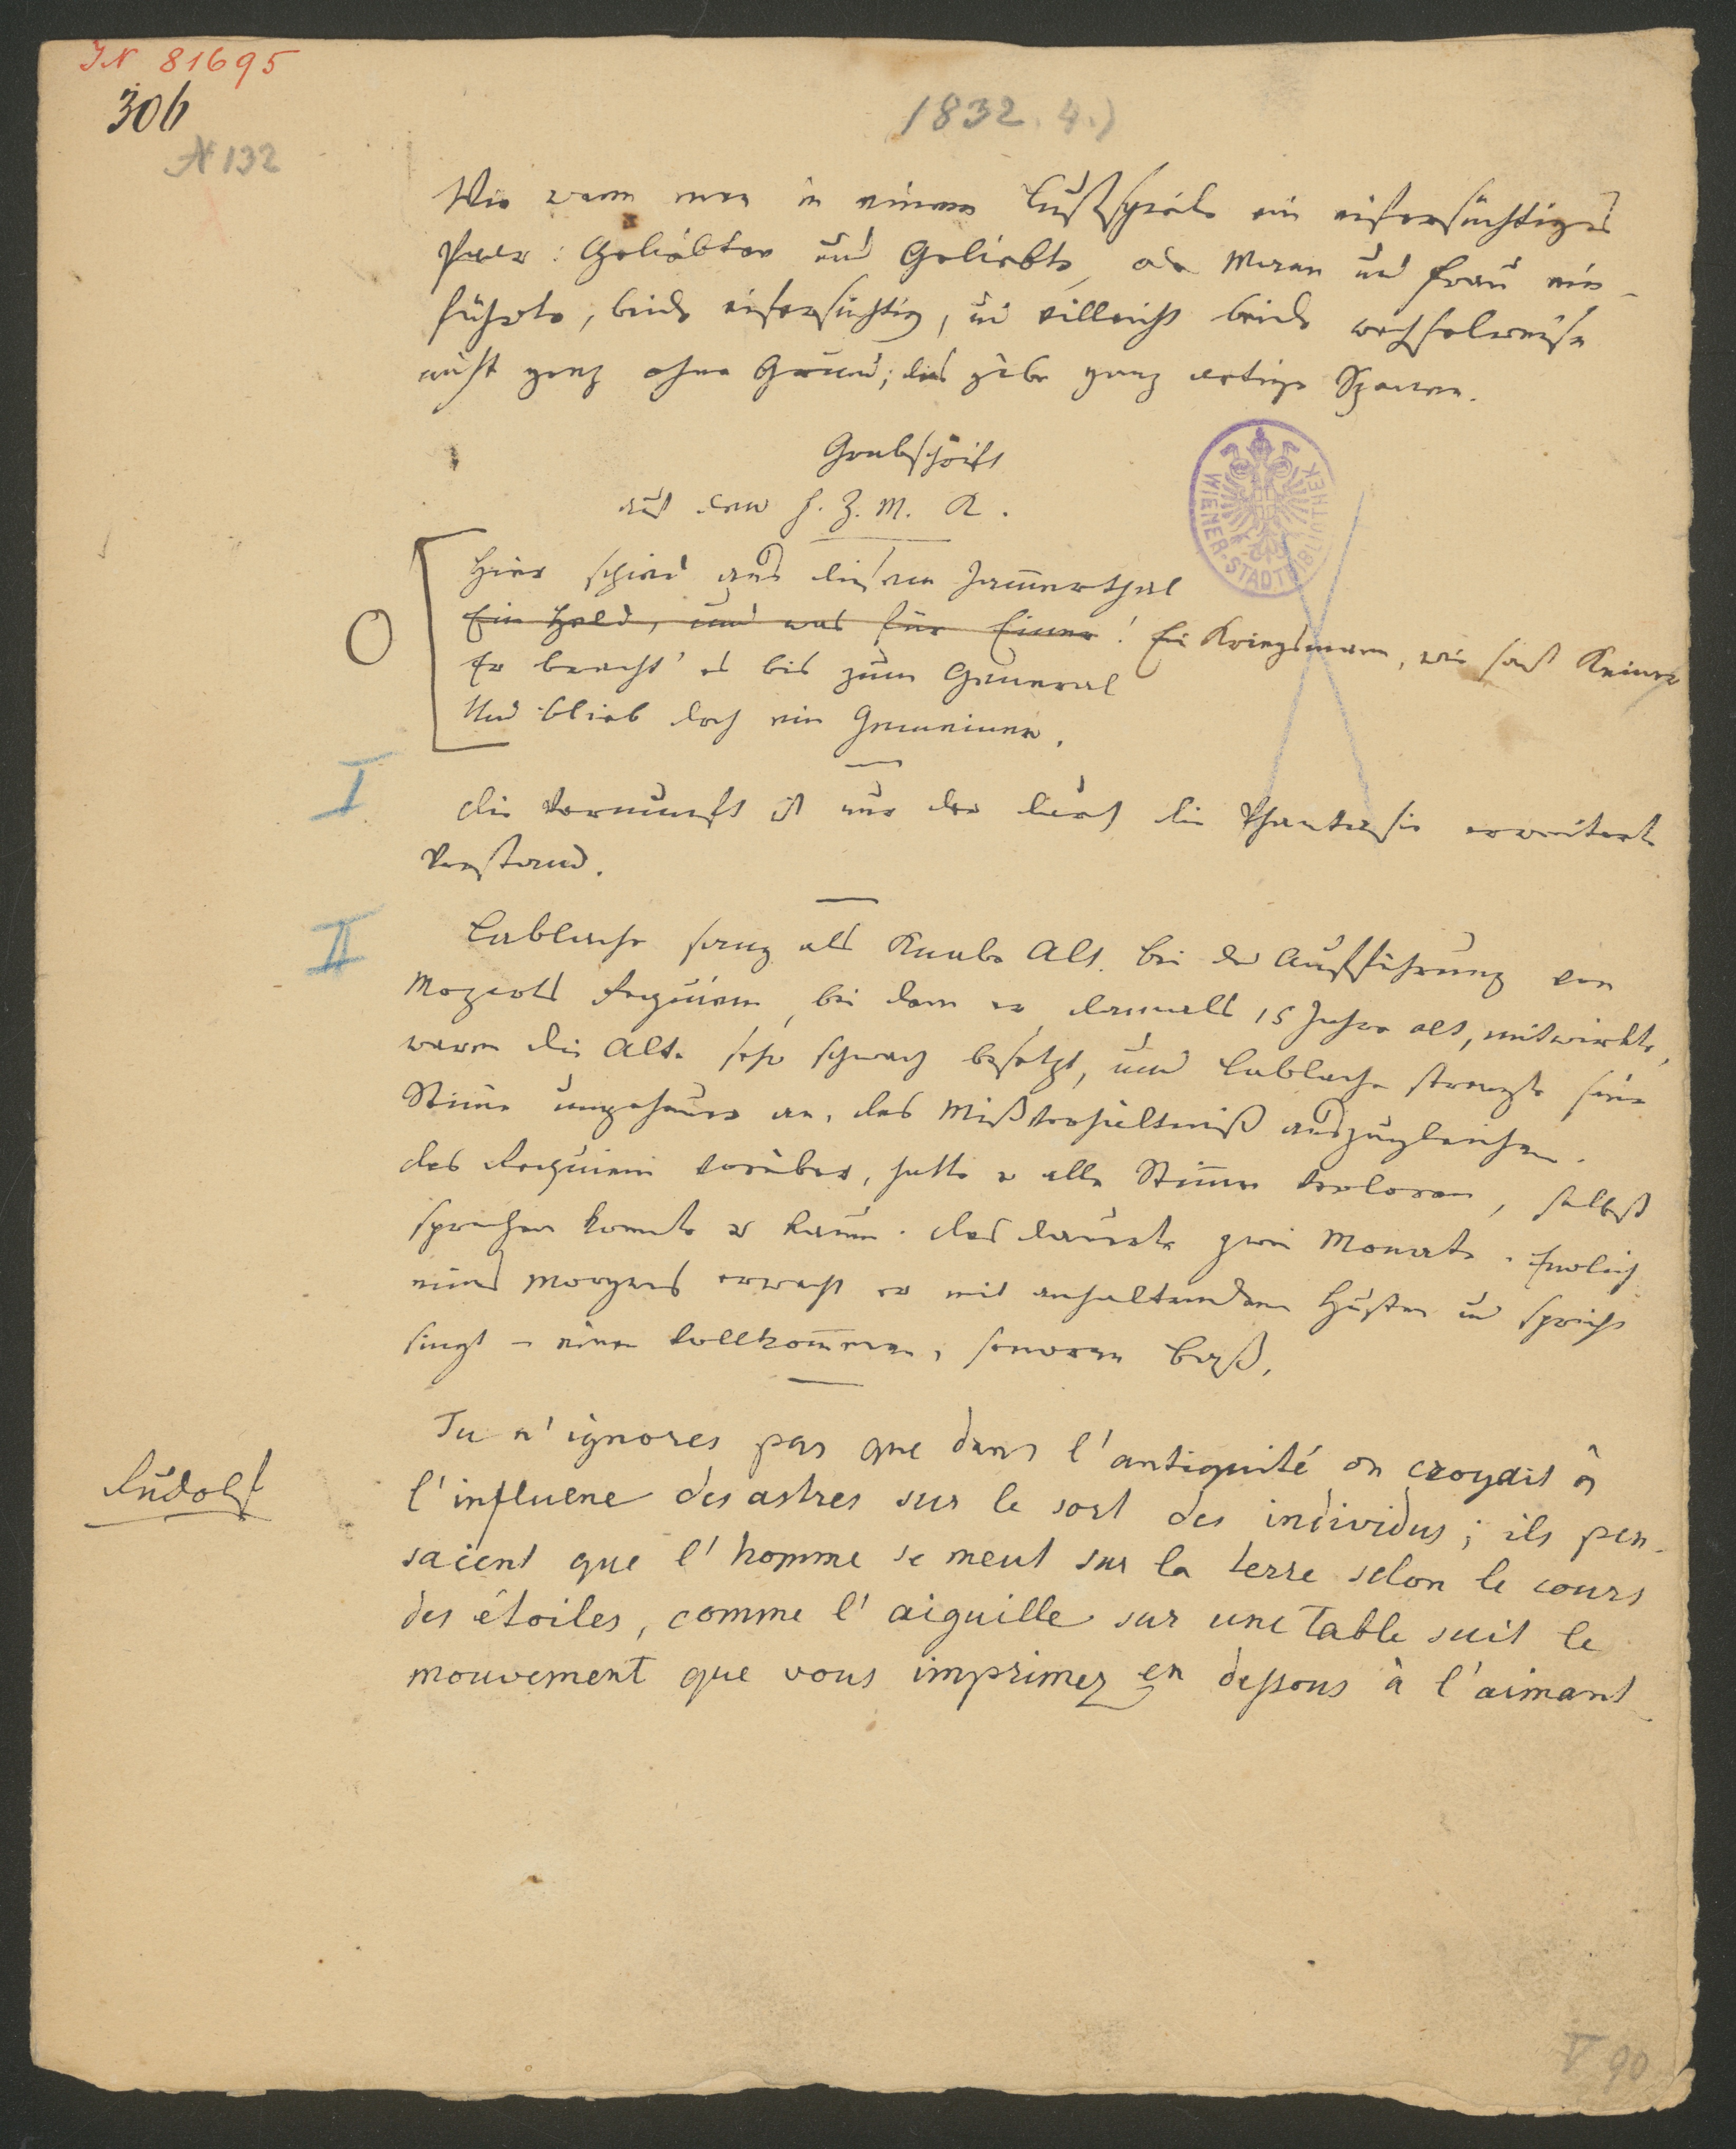 IN 81695
306
N 132
1832. 4.)
Wie wenn man in einem Lustspiele ein eifersüchtiges
Paar: Geliebter und Geliebte, oder Mann und Frau ein-
führte, beide eifersüchtig, und villeicht beide wechselweise
nicht ganz ohne Grund; das gäbe ganz artige Szenen.
Grabschrift
auf den F. Z. M. K.
Hier schied aus diesem Jam̅erthal
Ein Held, und was für Einer! Ein Kriegsmann, wie sonst Keiner
Er bracht' es bis zum General
Und blieb doch ein Gemeiner.
O
I
Die Vernunft ist nur der durch die Phantasie erweiterte
Verstand.
II
Lablache sang als Knabe Alt. Bei der Aufführung von
Mozarts Requiem, bei dem er, damals 15 Jahre alt, mitwirkte,
waren die Alte sehr schwach besetzt, und Lablache strengte seine
Stim̅e ungeheuer an, das Mißverhältniß auszugleichen.
Das Requiem vorüber, hatte er alle Stim̅e verloren, selbst
sprechen konnte er kaum. Das dauerte zwei Monate. Endlich
eines Morgens erwacht er mit anhaltendem Husten und spricht
singt – einen vollkom̅enen, sonoren Baß.
Rudolf
Tu n'ignores pas que dans l'antiquité on croyait à
l'influene des astres sur le sort des individus; ils pen-
saient que l'homme se meut sur la terre selon le cours
des étoiles, comme l'aiguille sur une Table suit le
mouvement que vous imprimez en dessous à l'aimant
WIENER-STADTBIBLIOTHEK
V 90